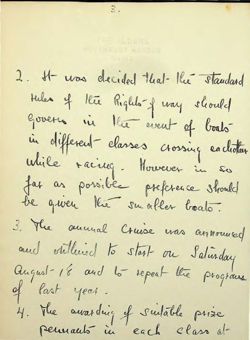 3.
2. It was decided that the standard
rules of the Rights of way should
govern in the event of boats
in different classes crossing each other
while racing. However in so
far as possible preference should
be given the smaller boats.
3. The annual Cruise was announced
and outlined to start on Saturday
August 18 and to repeat the program
of last year.
4. The awarding of suitable prize
pennants in each class at